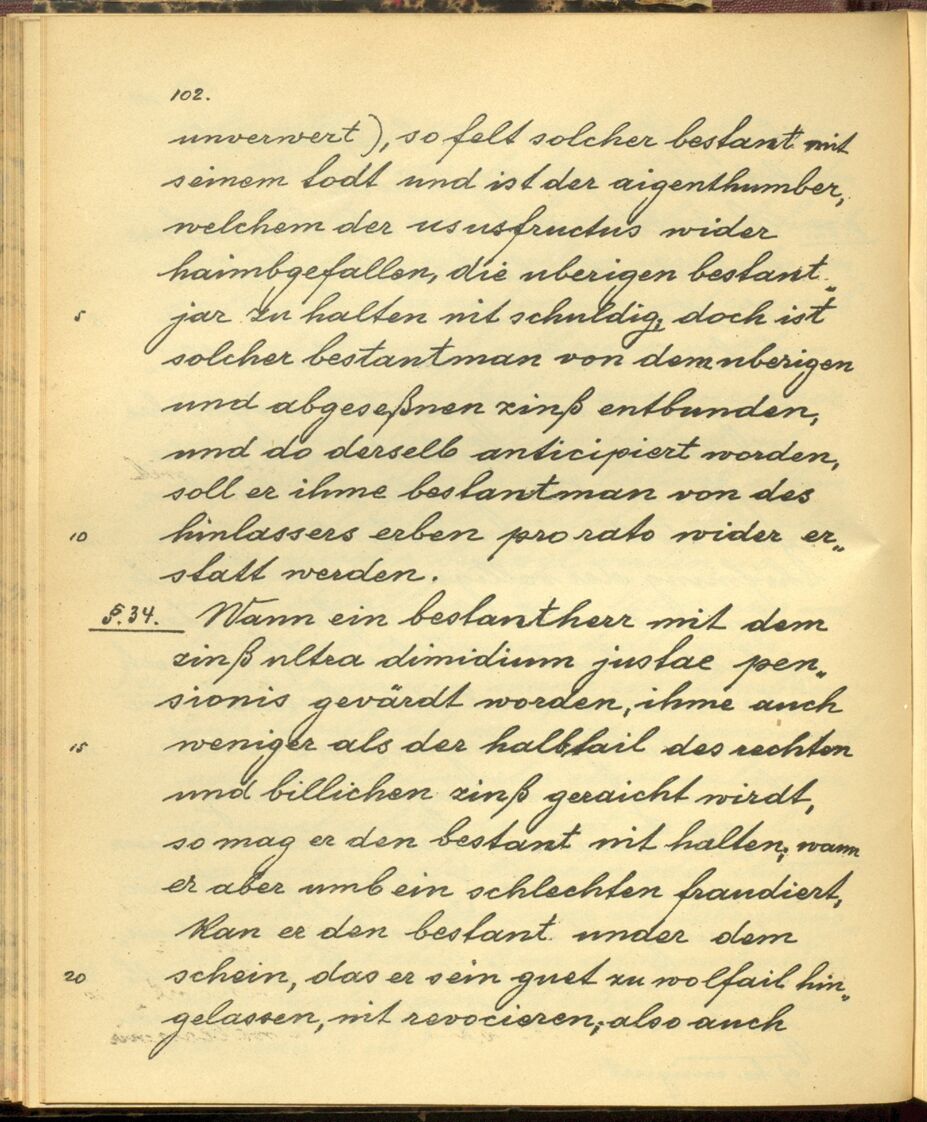 102.
unverwert), so felt solcher bestant mit
seinem todt und ist der aigenthumber,
welchem der ususfructus wider
haimbgefallen, die uberigen bestant„
5 jar zu halten nit schuldig, doch ist
solcher bestantman von dem uberigen
und abgeseßnen zinß entbunden,
und do derselb anticipiert worden,
soll er ihme bestantman von des
10 hinlassers erben pro rato wider er„
statt werden.
§. 34. Wann ein bestantherr mit dem
zinß ultra dimidium justae pen„
sionis gevärdt worden, ihme auch
15 weniger als der halbtail des rechten
und billichen zinß geraicht wirdt,
so mag er den bestant nit halten; wann
er aber umb ein schlechten fraudiert,
kan er den bestant under dem
20 schein, das er sein guet zu wolfail hin„
gelassen, nit revocieren; also auch